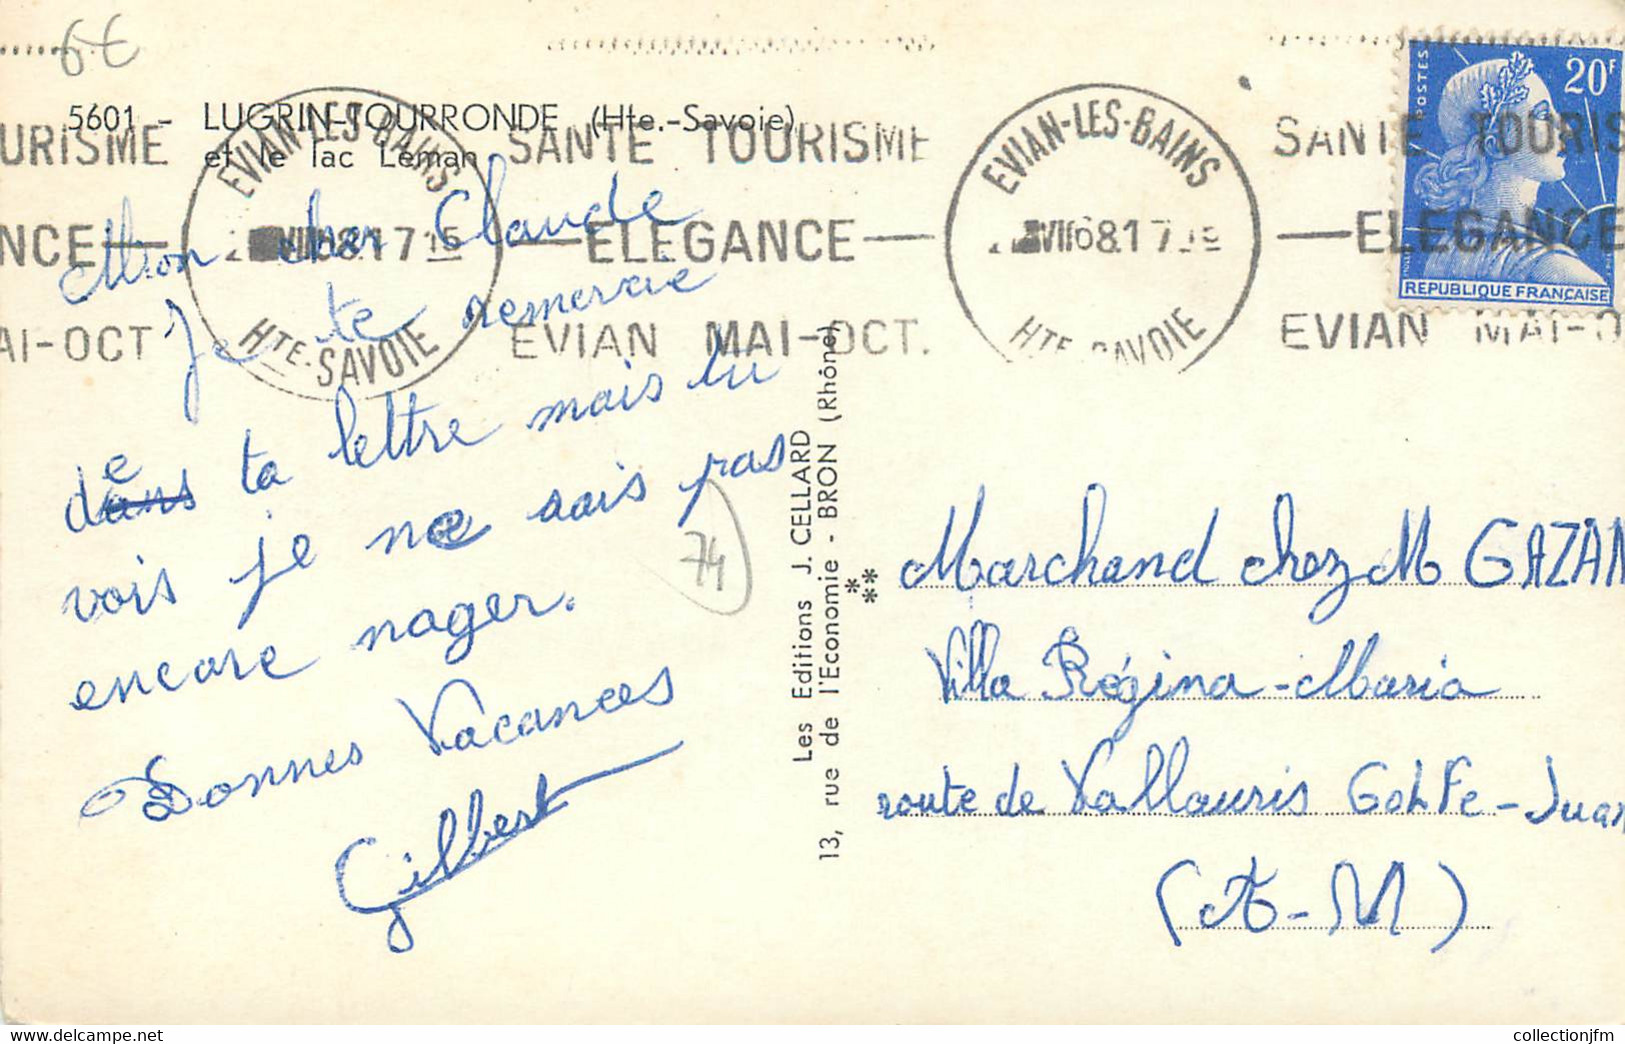 6€
5601 - LUGRIN-TOURRONDE (Hte.-Savoie)
et le lac Léman
URISME
NCE
AI-OCT
EVIAN-LES-BAINS
HTE-SAVOIE
SANTE TOURISME
ELEGANCE
EVIAN MAI-OCT.
EVIAN-LES-BAINS
HTE SAVOIE
SANTE TOURIS
ELEGANCE
EVIAN MAI-O
POSTES
20F
REPUBLIQUE FRANÇAISE
Mon cher Claude
Je te remercie
de ta lettre mais tu
vois je ne sais pas
encore nager.
Bonnes Vacances
Gilbert
74
Les Editions J. CELLARD
13, rue de l'Economie - BRON (Rhône)
Marchand chez M GAZAN
Villa Régina-Maria
route de Vallauris GOLFe-Juan
(A-M)
collectionjfm